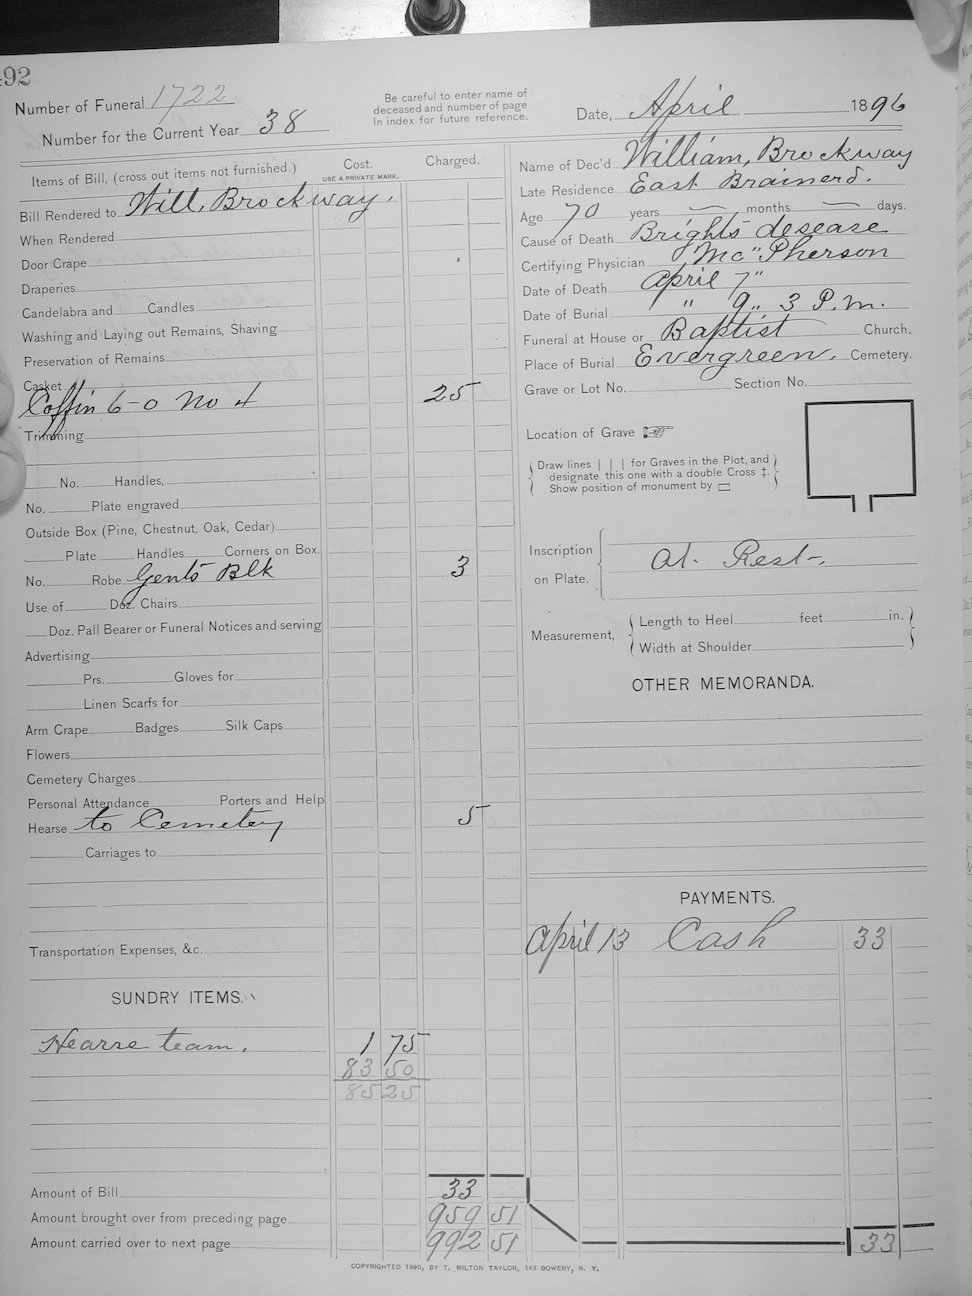 492
Number of Funeral 1722
Number for the Current Year 38
Be careful to enter name of
deceased and number of page
In index for future reference.
Date, April 1896
Items of Bill, (cross out items not furnished.)
Cost.
USE A PRIVATE MARK.
Charged.
Bill Rendered to Will, Brockway.
When Rendered
Door Crape
Draperies
Candelabra and Candles
Washing and Laying out Remains, Shaving
Preservation of Remains
Casket
Coffin 6-0 No 4 25
Trimming
No. Handles,
No. Plate engraved
Outside Box (Pine, Chestnut, Oak, Cedar)
Plate Handles Corners on Box.
No. Robe Gents Blk 3
Use of Doz. Chairs
Doz. Pall Bearer or Funeral Notices and serving
Advertising
Prs. Gloves for
Linen Scarfs for
Arm Crape Badges Silk Caps
Flowers
Cemetery Charges
Personal Attendance Porters and Help
Hearse to Cemetey 5
Carriages to
Transportation Expenses, &c.
SUNDRY ITEMS.
Hearse team, 1 75
83 50
85 25
Amount of Bill 33
Amount brought over from preceding page 959 51
Amount carried over to next page 992 51
Name of Dec'd William, Brockway
Late Residence East Brainerd.
Age 70 years months days.
Cause of Death Brights desease
Certifying Physician "Mc" Pherson
Date of Death April 7"
Date of Burial " 9,, 3 P.M.
Funeral at House or Baptist Church.
Place of Burial Evergreen. Cemetery.
Grave or Lot No. Section No.
Location of Grave ☞
Draw lines | | | for Graves in the Plot, and
designate this one with a double Cross ‡.
Show position of monument by ▭
Inscription
on Plate.
At. Rest-.
Measurement,
Length to Heel feet in.
Width at Shoulder
OTHER MEMORANDA.
PAYMENTS.
April 13 Cash 33
33
COPYRIGHTED 1890, BY T. MILTON TAYLOR, 163 BOWERY, N. Y.